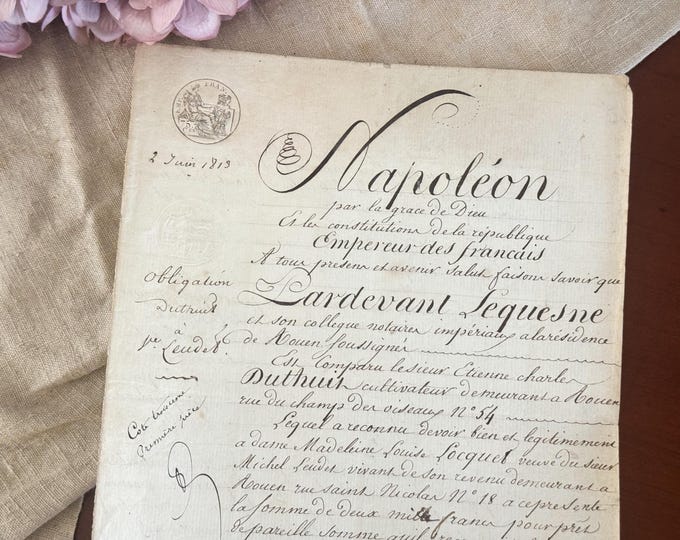 2 Juin 1813
Napoléon
par la grace de Dieu
Et les constitutions de la république
Empereur des francais
A tous presens et avenir salut faisons savoir que
Pardevant Lequesne
et son collegue notaires impériaux a la résidence
de Rouen soussignés
Est Comparu le sieur Etienne charle
Duthuit cultivateur demeurant a Rouen
rue du champ des oiseaux N° 54
Lequel a reconnu devoir bien et légitimement
a dame Madeleine Louise Locquet veuve du sieur
Michel Leudet vivant de son revenu demeurant a
Rouen rue saint Nicolas N° 18 a ce presente
la somme de deux mille francs pour prêt
de pareille somme
Obligation
Dutruit
à
Ve Leudet
Cote troisieme
Premiere piece